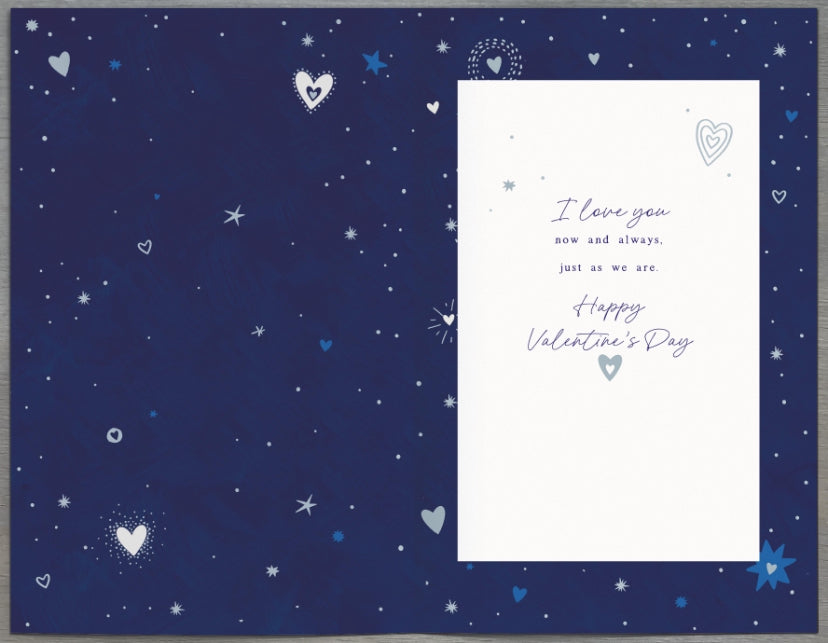 I love you
now and always,
just as we are.
Happy
Valentine's Day